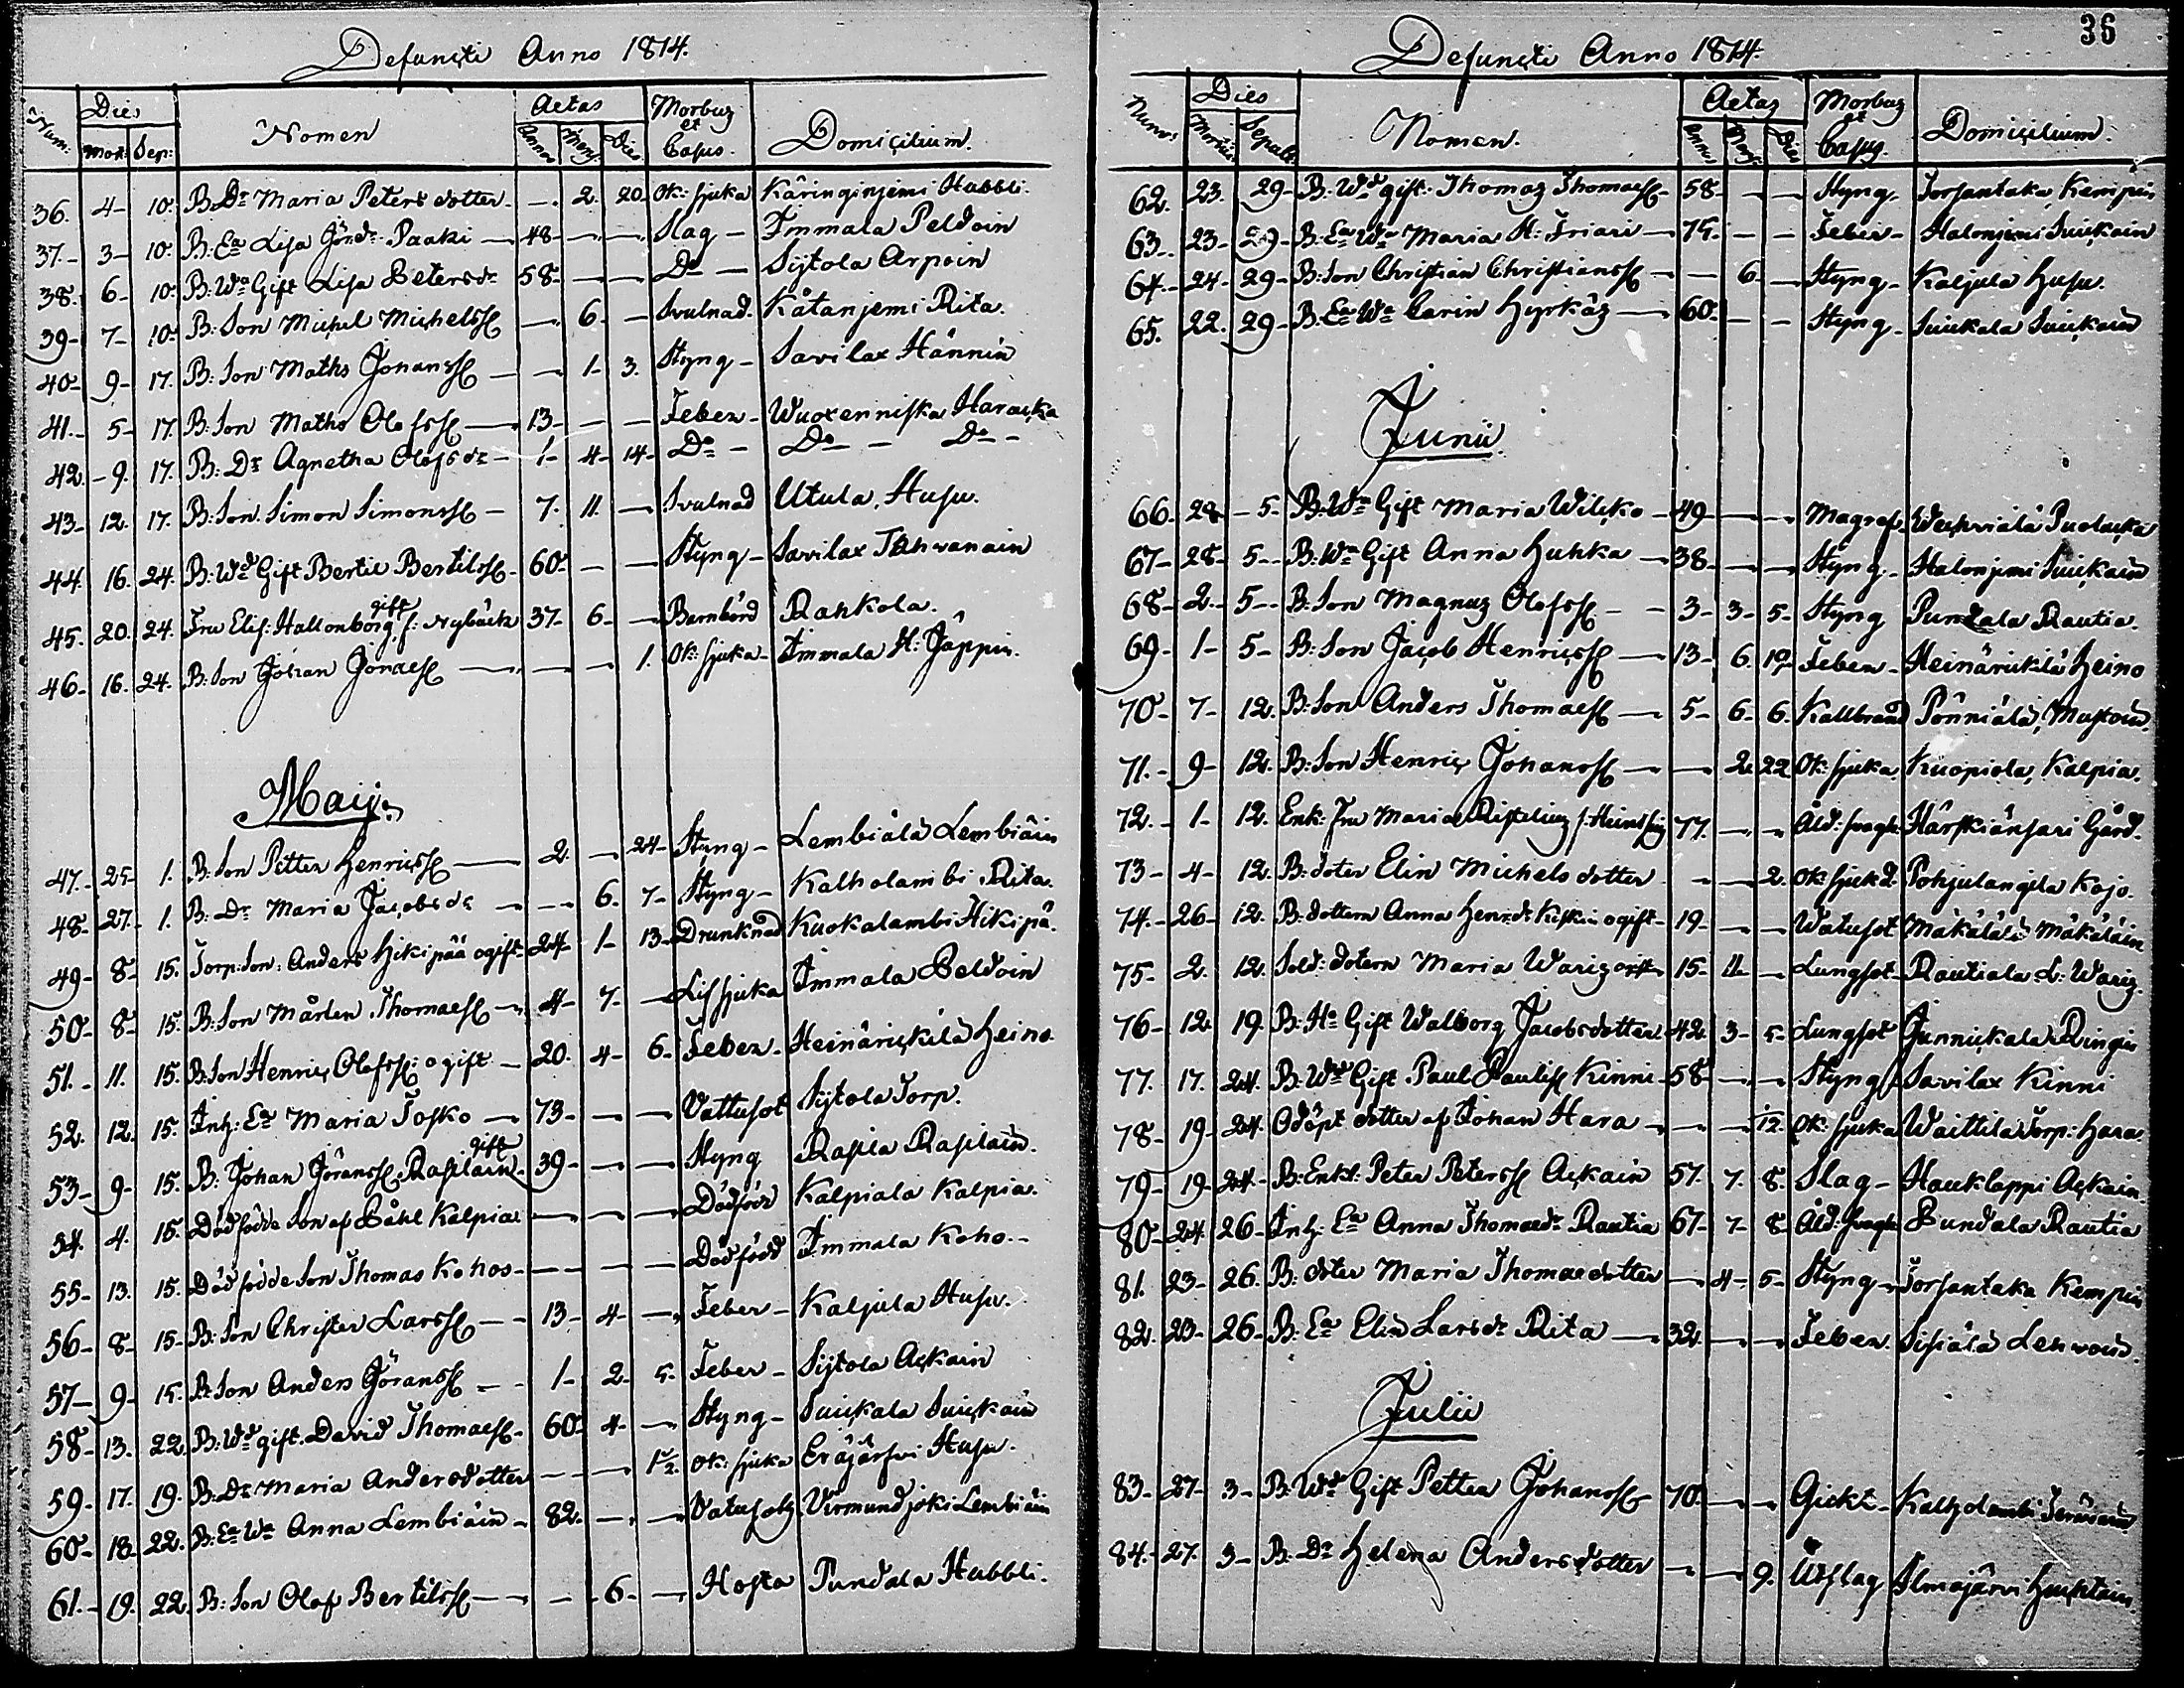 Defuncti Anno 1814.
Num: Dies Mor: Sep: Nomen Aetas Annos Mens: Dies Morbus et Casus. Domicilium.
36. 4- 10. B. Dr Maria Peters dotter - -. 2. 20. Ok: sjuka Käringinjemi Hubbli.
37.- 3- 10. B: Ea Lisa Görsdr Paaki - 48- -. -. Slag - Immala Peldoin
38. 6- 10. B: Wa Gift Lisa Petersdr 58- - - Do - Sijtola Arpoin
39- 7- 10. B: Son Michel Michelss - . 6. - Svulnad. Kåtanjemi Rita.
40- 9- 17. B: Son Maths Johanss - - 1- 3. Styng - Savilax Hännin
41.- 5- 17. B: Son Maths Olofss - 13- - - Feber - Wuoxenniska Haracka
42.- 9. 17. B: Dr Agnetha Olofsdr - 1- 4- 14- Do - Do - Do -
43- 12. 17. B: Son. Simon Simonss - 7. 11. - Svulnad Utula, Husu.
44. 16. 24. B: Wd Gift Bertil Bertilss - 60- - - Styng - Savilax Tåhvanain
45. 20. 24. Fru Elis: Hallonborg, gift f: Nybäck 37- 6- - Barnbörd Rahkola.
46- 16. 24. B: Son Johan Jönaess - - - 1. Ok: sjuka - Immala H: Jäppin.
Maij.
47.- 25- 1. B: Son Petter Henricss - 2. - 24- Styng - Lembiälä Lembiäin
48- 27.- 1. B: Dr Maria Jacobsdr - - 6. 7- Styng - Kalholambi Rita.
49- 8- 15. Torp: Son: Anders Hikipää ogift - 24- 1- 13- Drunknad Kuokalambi Hikipä.
50- 8- 15. B: Son Mårten Thomaess - 4- 7. - Lissjuka Immala Peldoin
51.- 11. 15. B: Son Henric Olofss: ogift - 20. 4- 6- Feber - Heinärickilä Heino
52. 12. 15. Inh: Ea Maria Tosko - 73- - - Vattusot Sijtola Torp.
53- 9- 15. B: Johan Jöranss Rasilain gift - 39- - - Styng Rasila Rasilain.
54. 4. 15. Dödfödde Son af Påhl Kalpia - - - Dödfödd Kalpiala Kalpia.
55- 13. 15. Dödfödde Son Thomas Kohos - - - - Dödfödd Immala Koho. -
56- 8- 15- B: Son Christer Larss - - 13- 4- - Feber - Kaljula Husu.
57- 9- 15. B: Son Anders Göranss - - 1- 2. 5. Feber - Sijtola Ackain
58- 13. 22. B: Wd gift. David Thomaess - 60- 4- - Styng - Suickala Suickain
59- 17. 19. B: Dr Maria Andersdotter - - - 1/2. Ok: sjuka Eräjärfvi Husu.
60- 18- 22. B: Ea Wa Anna Lembiäin - 82. - - Vatusot Virmundjoki Lembiäin
61.- 19. 22. B: Son Olof Bertilss - - - 6- - Hosta Pundala Hubbli.
36
Defuncti Anno 1814.
Numros Dies Mortis Sepult: Nomen. Aetas Annos Mens: Dies Morbus et Casus. Domicilium.
62. 23. 29- B: Wd gift: Thomas Thomaess - 58- - - Styng - Torsantaka, Kempin
63- 23- 29- B: Ea Wa Maria H: Friari - 75- - - Feber - Halonjemi Suickain
64.- 24- 29- B: Son Christian Christianss - - 6- - Styng - Kaljula Husu.
65. 22. 29- B: Ea Wa Carin Hyrkäs - 60- - - Styng - Suickala Suickain
Junii.
66. 28 - 5- B: Wa Gift Maria Wilcko - 49- - - Magref. Wechviälä Puolacka
67- 28- 5-- B: Wa Gift Anna Huhka - 38- - - Styng - Halonjemi Suickain
68- 2.- 5-- B: Son Magnus Olofss - - 3- 3- 5- Styng Pundala Rautia.
69- 1- 5- B: Son Jacob Henricss - 13- 6. 19. Feber - Heinärickilä Heino
70- 7- 12. B: Son Anders Thomaess - 5- 6. 6. Kallbrand Pönniälä, Mustoin.
71.- 9- 12. B: Son Henric Johanss - - 2. 22. Ok: sjuka. Kuopiola, Kalpia.
72.- 1- 12. Enk: Fru Maria Ristelius f: 77. - - Åld: svagh: Härskiänsari Gård.
73- 4- 12. B: doter Elin Michelsdotter - - 2. Ok: sjuk Pohjalangila Kojo.
74.- 26- 12. B: dottern Anna Henrdr ogift - 19- - - Watusot Mäkälälä Mäkäläin
75- 2. 12. Sold: dotern Maria Waris 15- 11- - Lungsot - Rautiala L: Waris.
76- 12. 19. B: Ha Gift Walborg Jacobsdotter 42. 3- 5- Lungsot Junnickala Ringin
77. 17. 24. B: Wd Gift. Paul Paulss Kinni - 58- - - Styng Savilax Kinni
78- 19- 24. Odöpt dotter af Johan Hara - - - 1/2. Ok: sjuka Waittila Torp: Hara.
79- 19- 24.- B: Enkl: Peter Peterss Ackain 57. 7. 8. Slag - Haukkappi Ackain.
80- 24. 26- Inh: Ea Anna Thomaedr Rautia 67- 7- 8- Åld: svagh: Pundala Rautia
81. 23- 26. B: doter Maria Thomaedotter - 4- 5- Styng - Torsantaka Kempin
82. 23- 26- B: Ea Elin Larsdr Rita - 32. - - Feber. Sipiälä Lenvoin.
Julii
83- 27- 3- B: Wd Gift Petter Johanss - 70. - - Gickt - Kalholambi
84.- 27. 3- B. Dr Helena Andersdotter - - 9. Utslag Ilmajärvi Huuhtain.